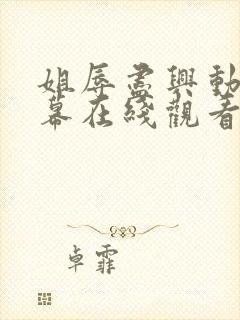 姐辱盡興動
幕在綫觀看
卓霏